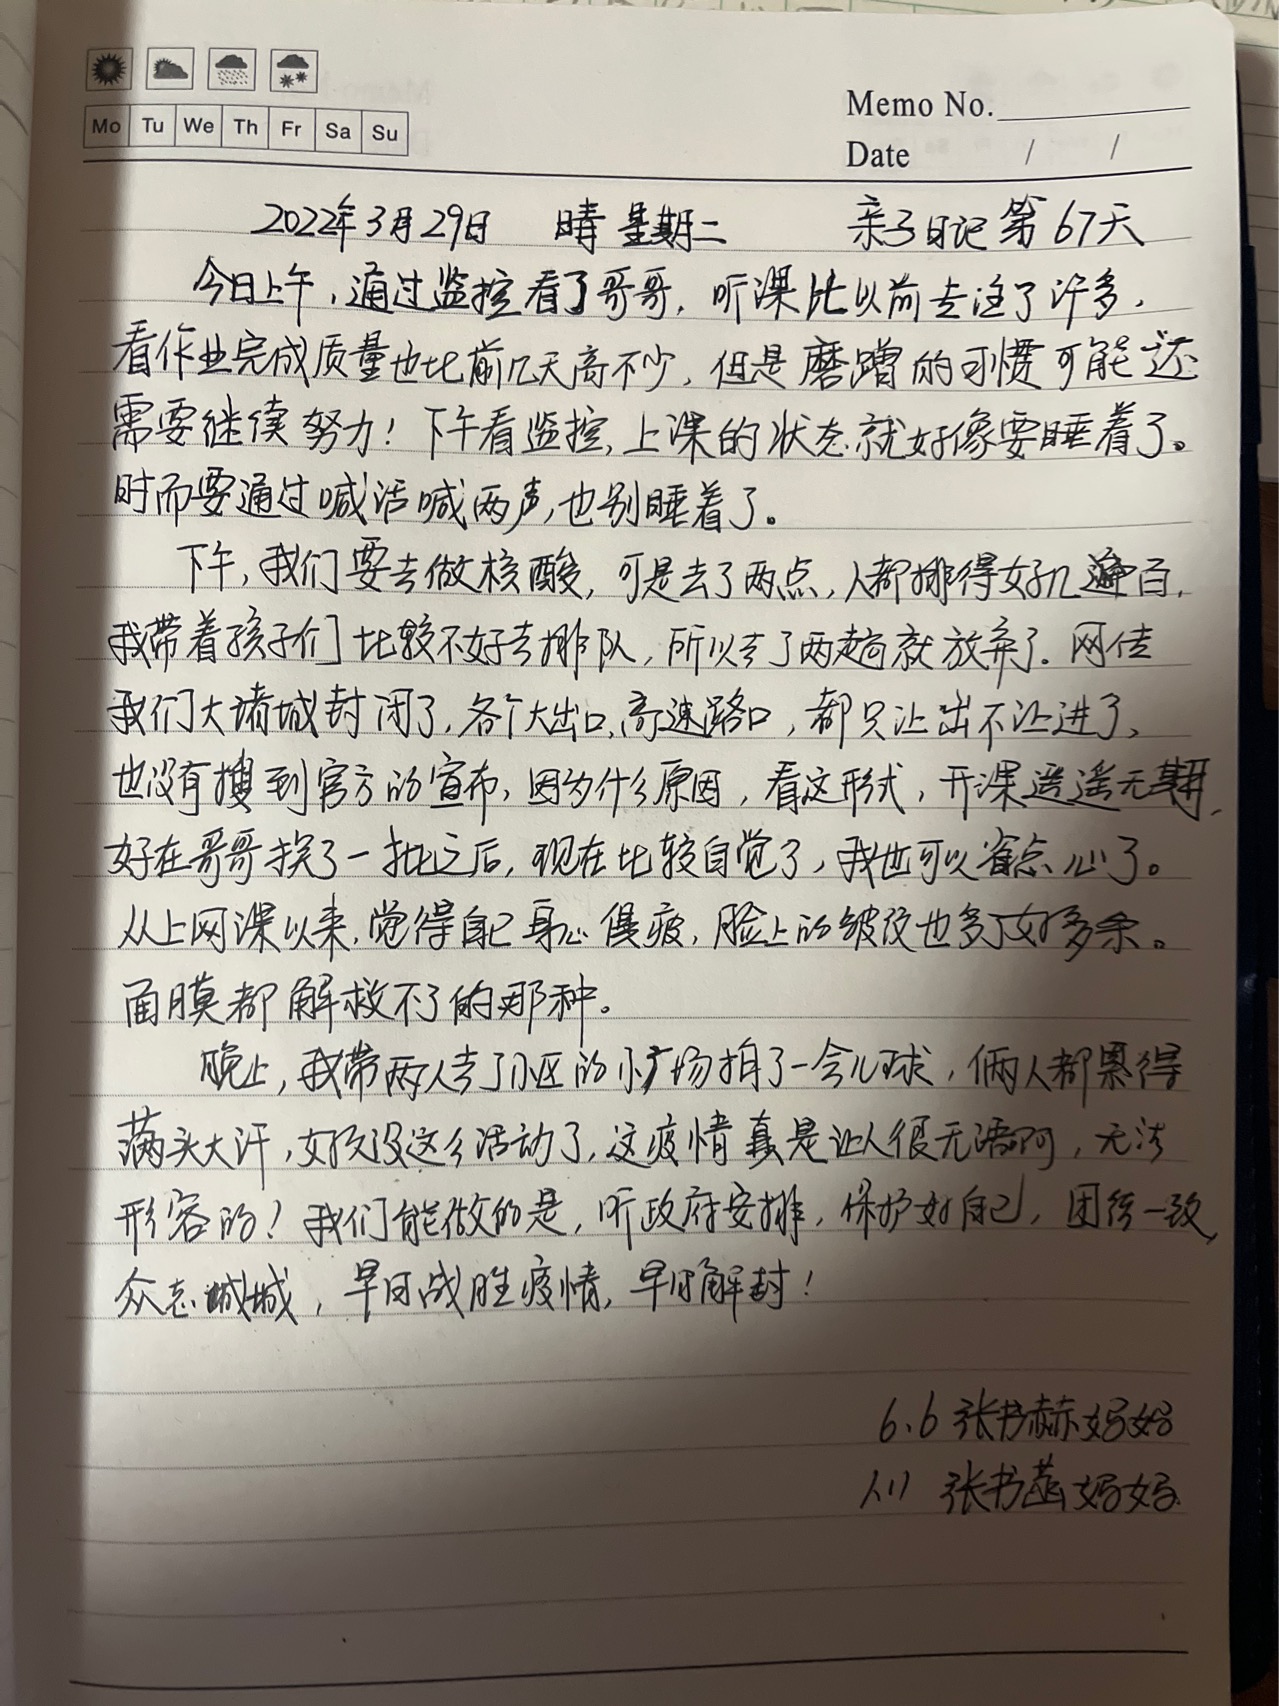 Mo Tu We Th Fr Sa Su
Memo No.
Date / /
2022年3月29日 晴 星期二 亲子日记第67天
今日上午,通过监控看了哥哥,听课比以前专注了许多,
看作业完成质量也比前几天高不少,但是磨蹭的习惯可能还
需要继续努力!下午看监控,上课的状态就好像要睡着了。
时而要通过喊话喊两声,也别睡着了。
下午,我们要去做核酸,可是去了两点,人都排得好几百,
我带着孩子们比较不好去排队,所以去了两趟就放弃了.网传
我们大诸城封闭了,各个大出口,高速路口,都只让出不让进了、
也没有搜到官方的宣布,因为什么原因,看这形式,开课遥遥无期,
好在哥哥挨了一批之后,现在比较自觉了,我也可以省点心了。
从上网课以来,觉得自己身心俱疲,脸上的皱纹也多了好多余。
面膜都解救不了的那种。
晚上,我带两人去了小区的小广场拍了一会儿球,俩人都累得
满头大汗,好久没这么活动了,这疫情真是让人很无语啊,无法
形容的!我们能做的是,听政府安排,保护好自己,团结一致,
众志城城,早日战胜疫情,早日解封!
6.6 张书赫妈妈
张书菡妈妈